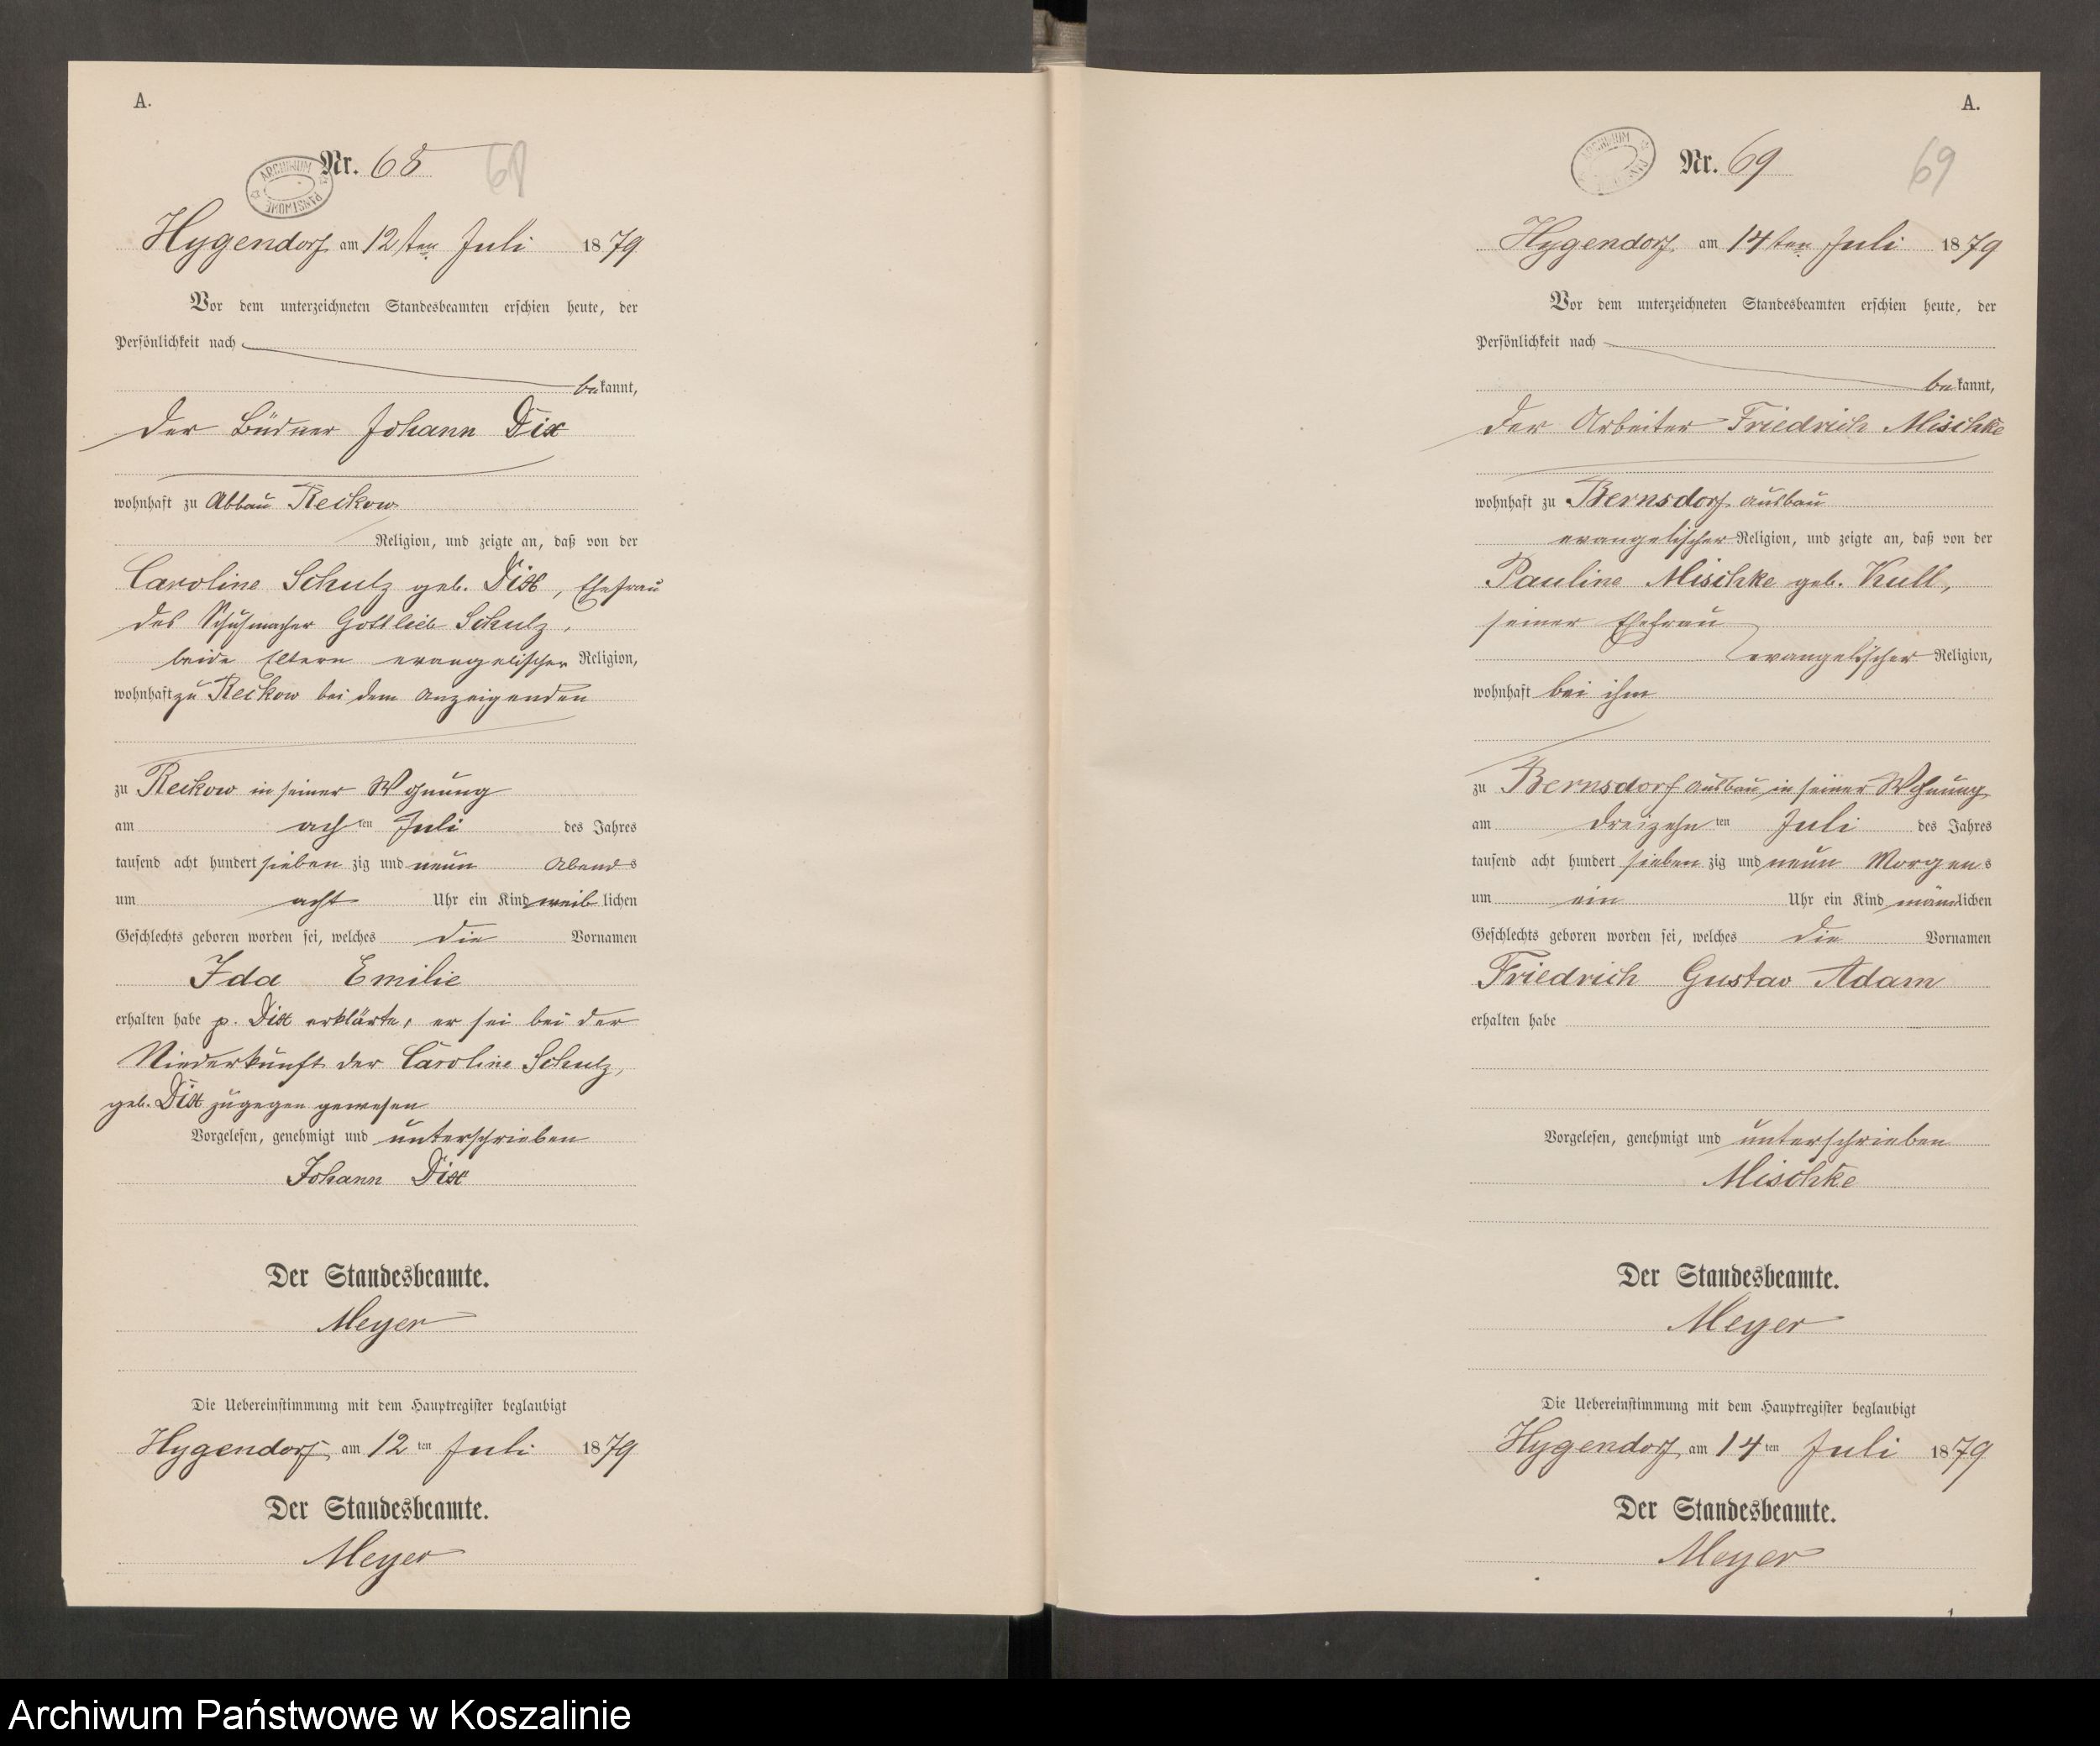 A.
Nr. 68 68
ARCHIWUM PAŃSTWOWE
Hygendorf am 12ten Juli 1879
Vor dem unterzeichneten Standesbeamten erschien heute, der
Persönlichkeit nach
bekannt,
der Büdner Johann Dix
wohnhaft zu Abbau Reckow
Religion, und zeigte an, daß von der
Caroline Schulz geb. Dix, Ehefrau
des Schuhmacher Gottlieb Schulz,
beide Eltern evangelischer Religion,
wohnhaft zu Reckow bei dem Anzeigenden
zu Reckow in seiner Wohnung
am achten Juli des Jahres
tausend acht hundert siebenzig und neun Abends
um acht Uhr ein Kind weiblichen
Geschlechts geboren worden sei, welches die Vornamen
Ida Emilie
erhalten habe p. Dix erklärte, er sei bei der
Niederkunft der Caroline Schulz,
geb. Dix zugegen gewesen
Vorgelesen, genehmigt und unterschrieben
Johann Dix
Der Standesbeamte.
Meyer
Die Uebereinstimmung mit dem Hauptregister beglaubigt
Hygendorf am 12ten Juli 1879
Der Standesbeamte.
Meyer
A.
Nr. 69 69
ARCHIWUM
Hygendorf am 14ten Juli 1879
Vor dem unterzeichneten Standesbeamten erschien heute, der
Persönlichkeit nach
bekannt,
der Arbeiter Friedrich Mischke
wohnhaft zu Bernsdorf Ausbau
evangelischer Religion, und zeigte an, daß von der
Pauline Mischke geb. Kull,
seiner Ehefrau
evangelischer Religion,
wohnhaft bei ihm
zu Bernsdorf Ausbau in seiner Wohnung
am dreizehnten Juli des Jahres
tausend acht hundert siebenzig und neun Morgens
um ein Uhr ein Kind männlichen
Geschlechts geboren worden sei, welches die Vornamen
Friedrich Gustav Adam
erhalten habe
Vorgelesen, genehmigt und unterschrieben
Mischke
Der Standesbeamte.
Meyer
Die Uebereinstimmung mit dem Hauptregister beglaubigt
Hygendorf am 14ten Juli 1879
Der Standesbeamte.
Meyer
Archiwum Państwowe w Koszalinie